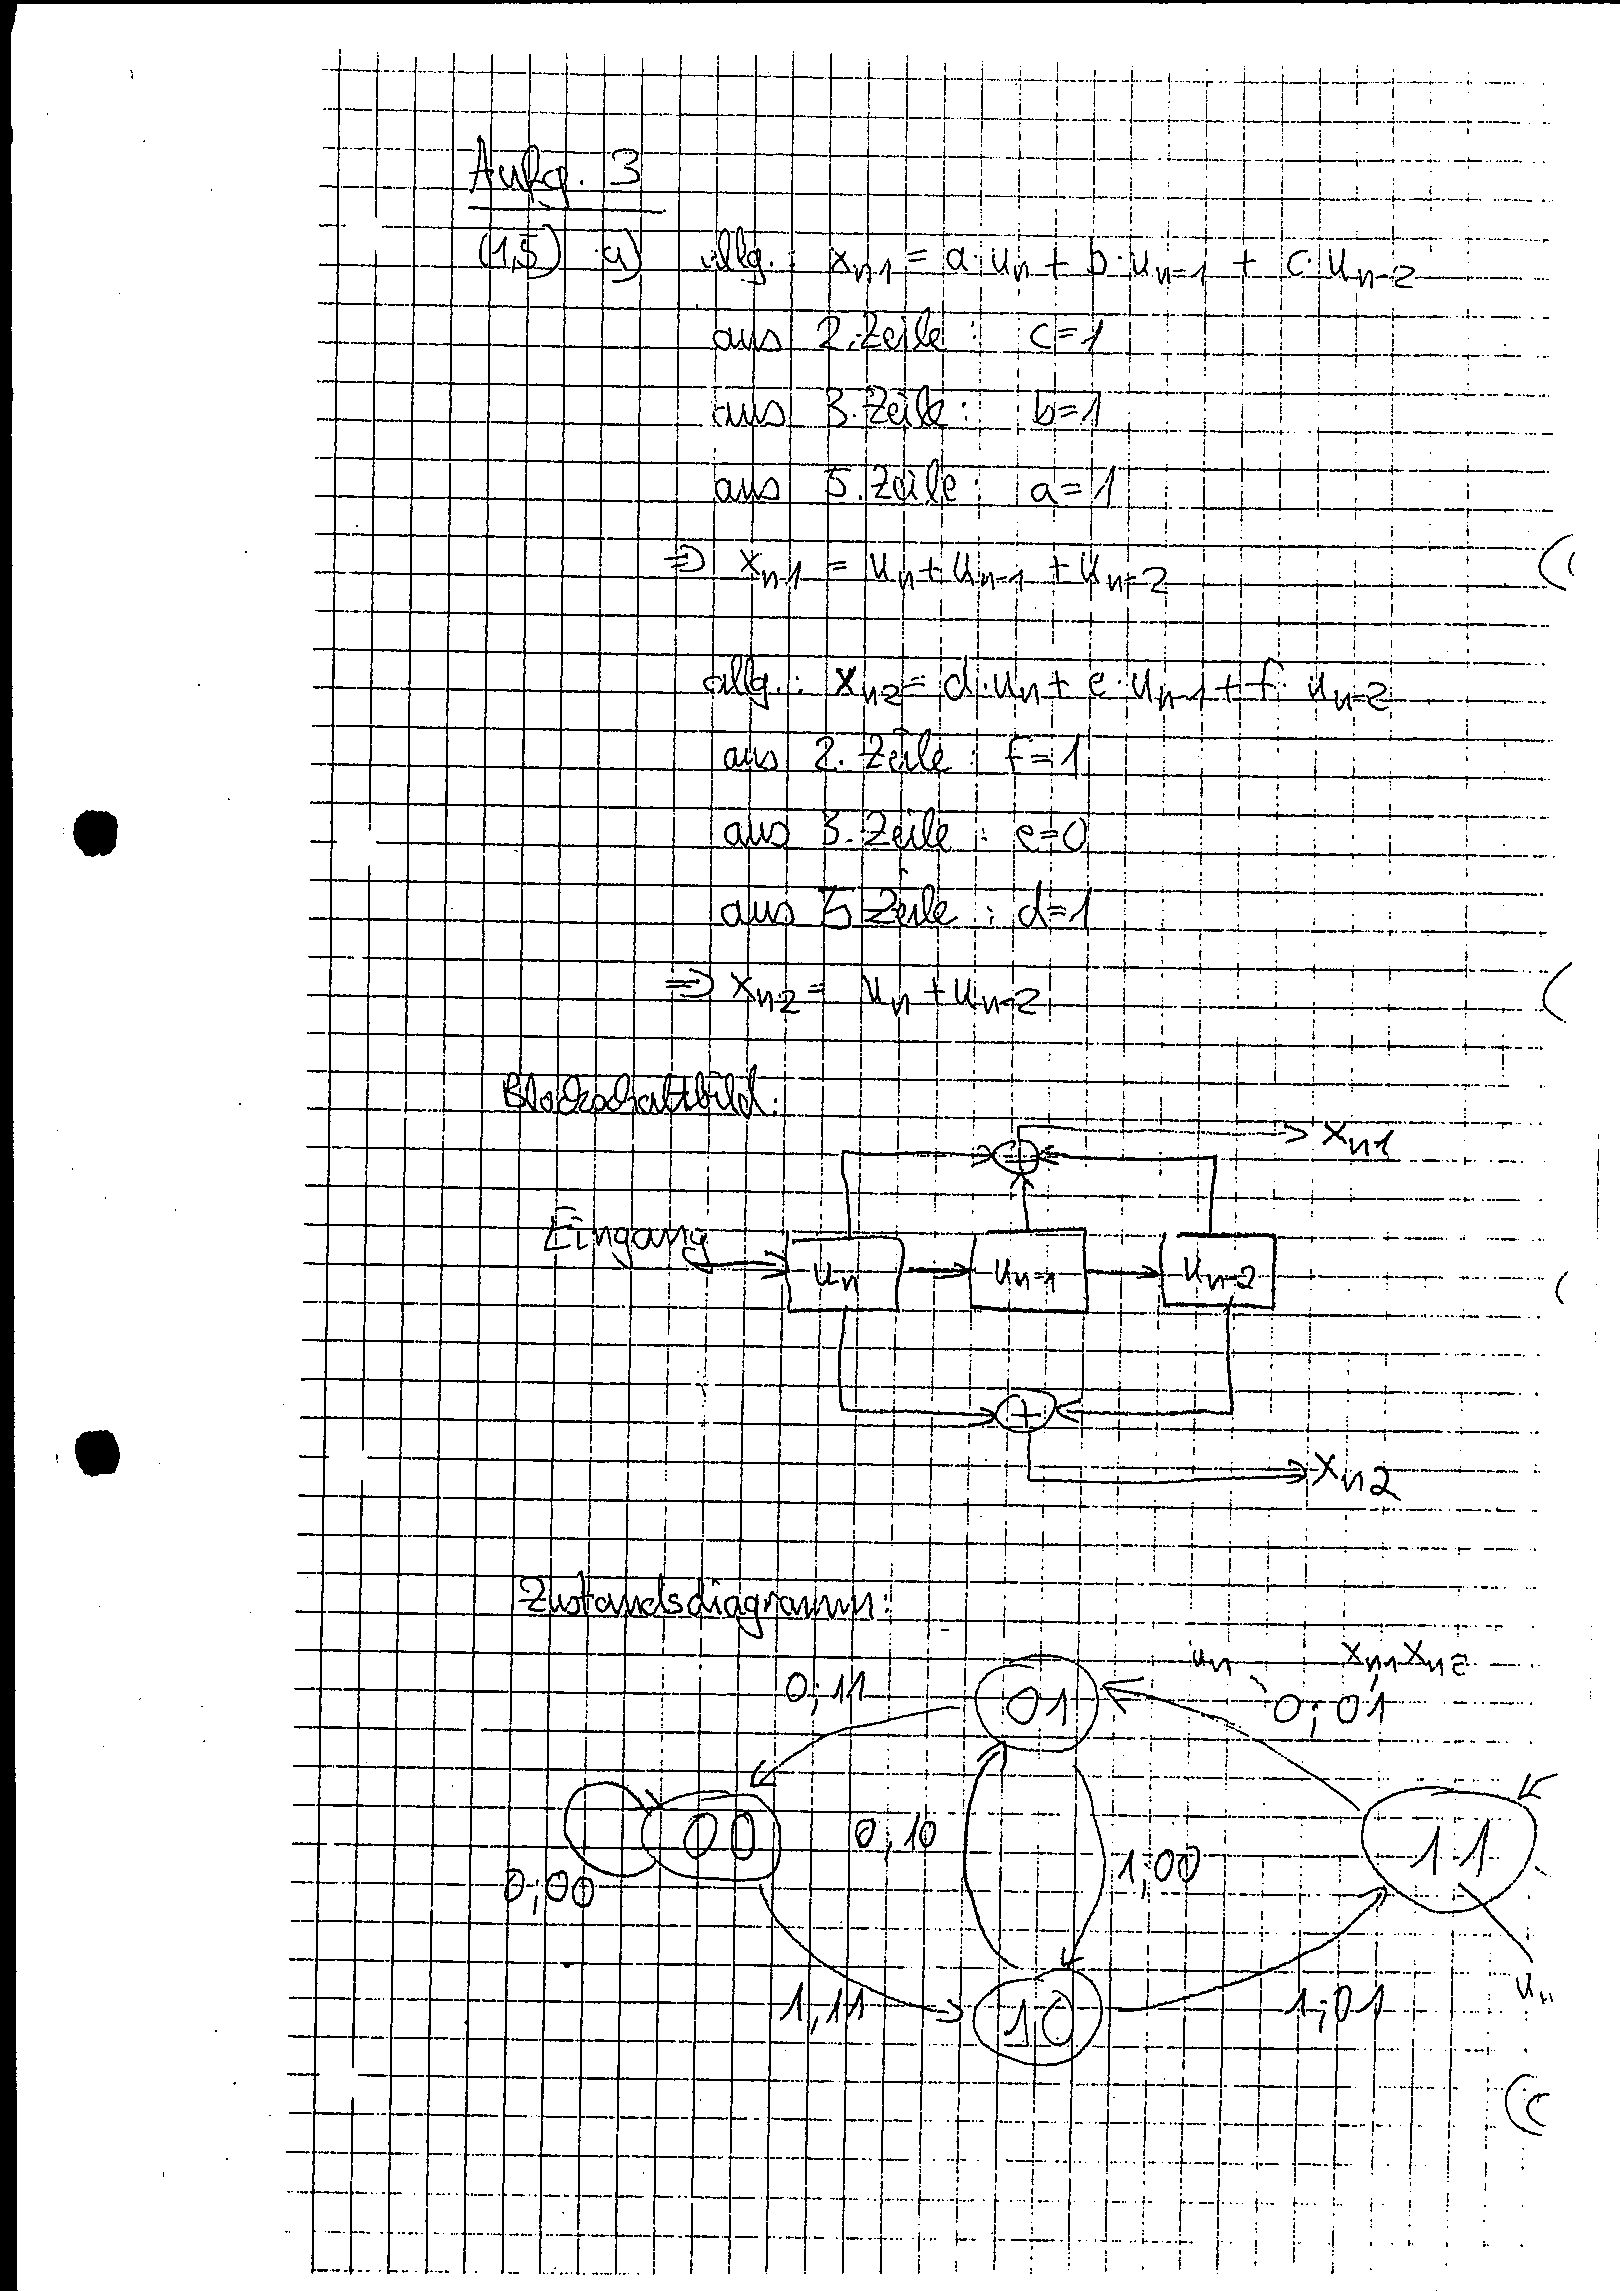 Aufg. 3
(1,5) a) allg.: xn1 = a·un + b·un-1 + c·un-2
aus 2.Zeile: c=1
aus 3.Zeile: b=1
aus 5.Zeile: a=1
⇒ xn1 = un+un-1 +un-2
allg.: xn2= d·un+ e·un-1+f· un-2
aus 2. Zeile: f=1
aus 3. Zeile: e=0
aus 5 Zeile: d=1
⇒ xn2 = un +un-2
Blockschaltbild:
xn1
Eingang
un un-1 un-2
+
xn2
Zustandsdiagramm:
un xn1 xn2
0;11 01 0;01
00 0,10 11
0;00 1;00
1,11 10 1;01